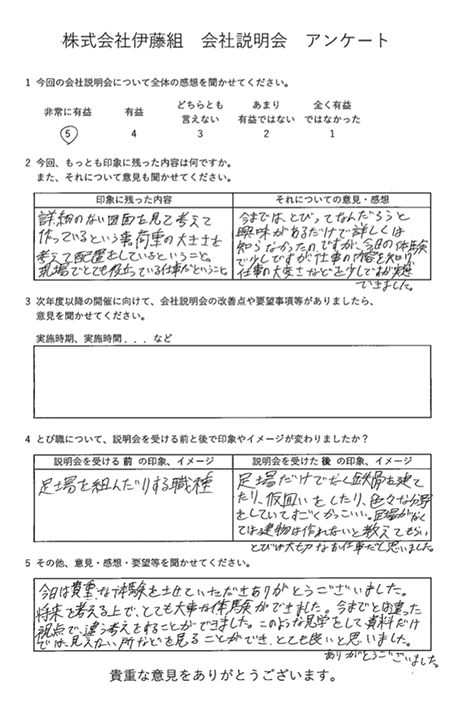 株式会社伊藤組　会社説明会　アンケート
1 今回の会社説明会について全体の感想を聞かせてください。
非常に有益　有益　どちらとも言えない　あまり有益ではない　全く有益ではなかった
5　4　3　2　1
2 今回、もっとも印象に残った内容は何ですか。
また、それについて意見も聞かせてください。
印象に残った内容
詳細のない図面を見て考えて
作っているという事、荷重の大きさを
考えて配置をしているということ。
現場でとても役立っている仕事だということ。
それについての意見・感想
今までは、とびってなんだろうと
興味があるだけで詳しくは
知らなかったのですが、今日の体験
で少しですが仕事の内容を知り
仕事の大変さなどを少しですが体感
できました。
3 次年度以降の開催に向けて、会社説明会の改善点や要望事項等がありましたら、
意見を聞かせてください。
実施時期、実施時間．．．など
4 とび職について、説明会を受ける前と後で印象やイメージが変わりましたか？
説明会を受ける 前 の印象、イメージ
足場を組んだりする職種
説明会を受けた 後 の印象、イメージ
足場だけでなく鉄骨を建て
たり、仮囲いをしたり、色々な分野
をしていてすごくかっこいい。足場がなく
ては建物は作れないと教えてもらい、
とびは大切なお仕事だと思いました。
5 その他、意見・感想・要望等を聞かせてください。
今日は貴重な体験をさせていただきありがとうございました。
将来を考える上で、とても大事な体験ができました。今までとは違った
視点で、違う考えをすることができました。このような見学をして資料だけ
では、見えない所などを見ることができ、とても良いと思いました。
ありがとうございました。
貴重な意見をありがとうございます。